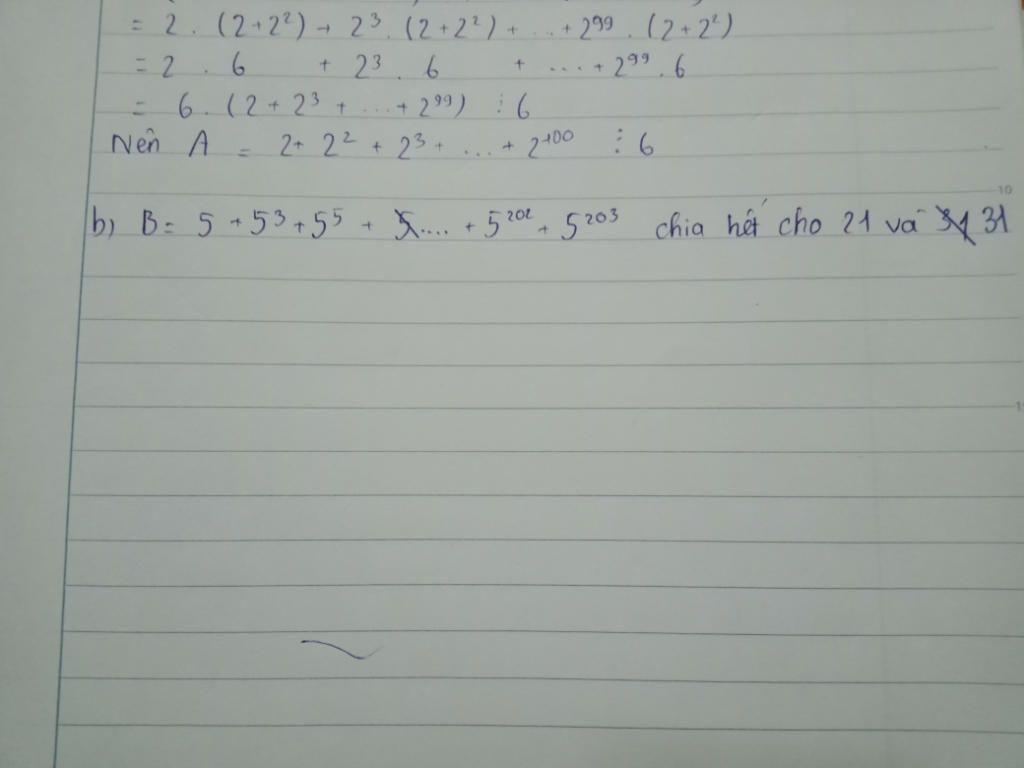 = 2 . (2+2²) + 2³ . (2+2²) + ... + 2⁹⁹ . (2+2²)
= 2 . 6 + 2³ . 6 + .... + 2⁹⁹ . 6
= 6 . (2 + 2³ + ... + 2⁹⁹) ⋮ 6
Nên A = 2 + 2² + 2³ + ... + 2¹⁰⁰ ⋮ 6
10
b) B = 5 + 5³ + 5⁵ + .... + 5²⁰¹ + 5²⁰³ chia hết cho 21 và 31